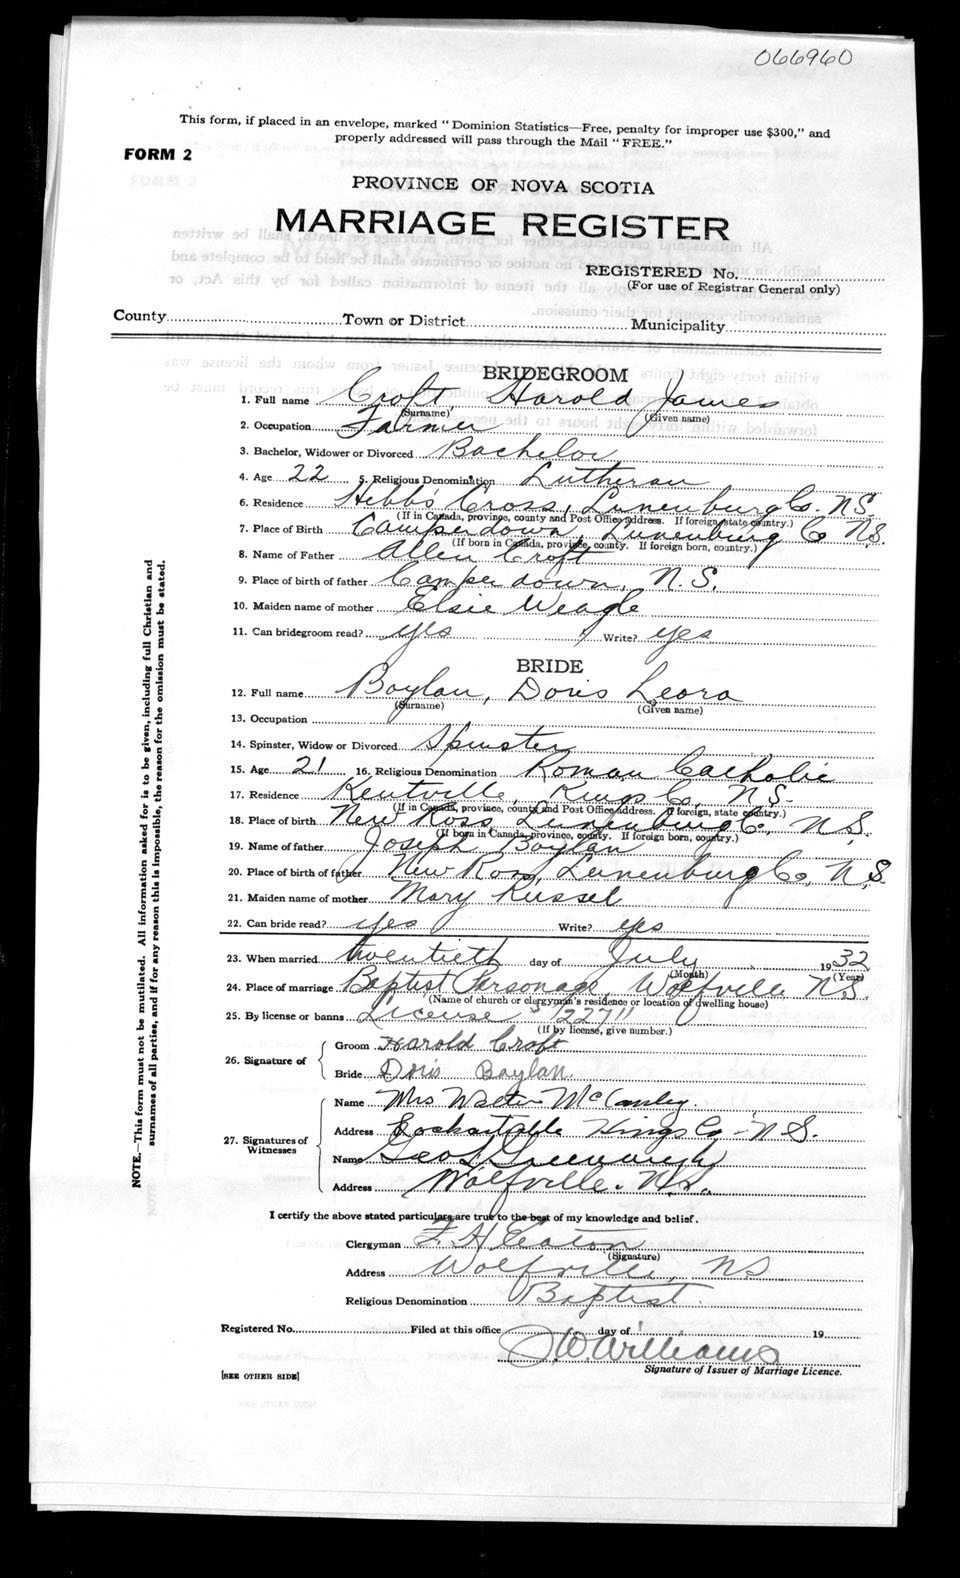 066960
This form, if placed in an envelope, marked " Dominion Statistics—Free, penalty for improper use $300," and
properly addressed will pass through the Mail " FREE."
FORM 2
PROVINCE OF NOVA SCOTIA
MARRIAGE REGISTER
REGISTERED No.
(For use of Registrar General only)
County Town or District Municipality
BRIDEGROOM
1. Full name Croft Harold James
(Surname) (Given name)
2. Occupation Farmer
3. Bachelor, Widower or Divorced Bachelor
4. Age 22 5. Religious Denomination Lutheran
6. Residence Hebb's Cross, Lunenburg Co. N.S.
(If in Canada, province, county and Post Office address. If foreign, state country.)
7. Place of Birth Camperdown, Lunenburg Co N.S.
(If born in Canada, province, county. If foreign born, country.)
8. Name of Father Allen Croft
9. Place of birth of father Camperdown, N.S.
10. Maiden name of mother Elsie Weagle
11. Can bridegroom read? yes Write? yes
BRIDE
12. Full name Boylan, Doris Leora
(Surname) (Given name)
13. Occupation
14. Spinster, Widow or Divorced Spinster
15. Age 21 16. Religious Denomination Roman Catholic
17. Residence Kentville, Kings Co, N.S.
(If in Canada, province, county and Post Office Address. If foreign, state country.)
18. Place of birth New Ross, Lunenburg Co., N.S.
(If born in Canada, province, county. If foreign born, country.)
19. Name of father Joseph Boylan
20. Place of birth of father New Ross, Lunenburg Co, N.S.
21. Maiden name of mother Mary Russel
22. Can bride read? yes Write? yes
23. When married twentieth day of July 1932
(Month) (Year)
24. Place of marriage Baptist Parsonage, Wolfville N.S.
(Name of church or clergyman's residence or location of dwelling house)
25. By license or banns License 122711
(If by license, give number.)
26. Signature of
Groom Harold Croft
Bride Doris Boylan.
27. Signatures of Witnesses
Name Mrs Walter
Address Kings Co - N.S.
Name Geo
Address Wolfville. N.S.
I certify the above stated particulars are true to the best of my knowledge and belief.
Clergyman F. H. Eaton
(Signature)
Address Wolfville, N.S.
Religious Denomination Baptist.
Registered No. Filed at this office day of 19
J.W. Williams
Signature of Issuer of Marriage Licence.
[SEE OTHER SIDE]
NOTE.—This form must not be mutilated. All information asked for is to be given, including full Christian and
surnames of all parties, and if for any reason this is impossible, the reason for the omission must be stated.